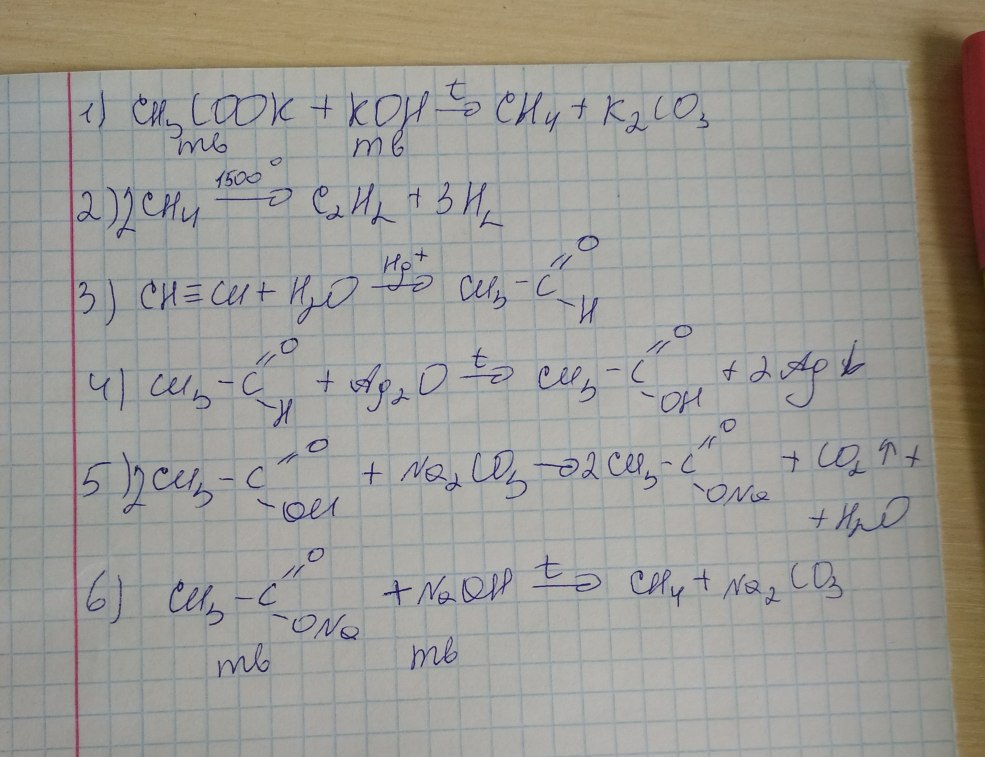 1) CH₃COOK + KOH →t CH₄ + K₂CO₃
тв тв
2) 2CH₄ →1500° C₂H₂ + 3H₂
3) CH≡CH + H₂O →Hg⁺ CH₃-C(=O)-H
4) CH₃-C(=O)-H + Ag₂O →t CH₃-C(=O)-OH + 2Ag↓
5) 2CH₃-C(=O)-OH + Na₂CO₃ → 2CH₃-C(=O)-ONa + CO₂↑ +
+ H₂O
6) CH₃-C(=O)-ONa + NaOH →t CH₄ + Na₂CO₃
тв тв